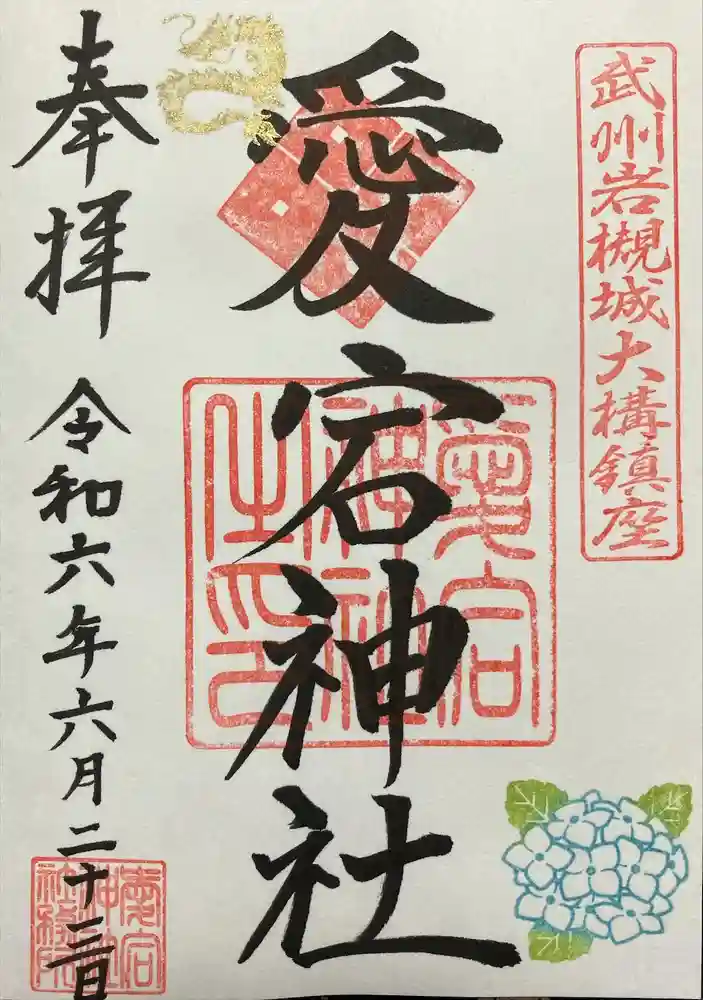 武州岩槻城大構鎮座
愛宕神社
愛宕神社之印
奉拝
令和六年六月二十三日
愛宕神社社務所